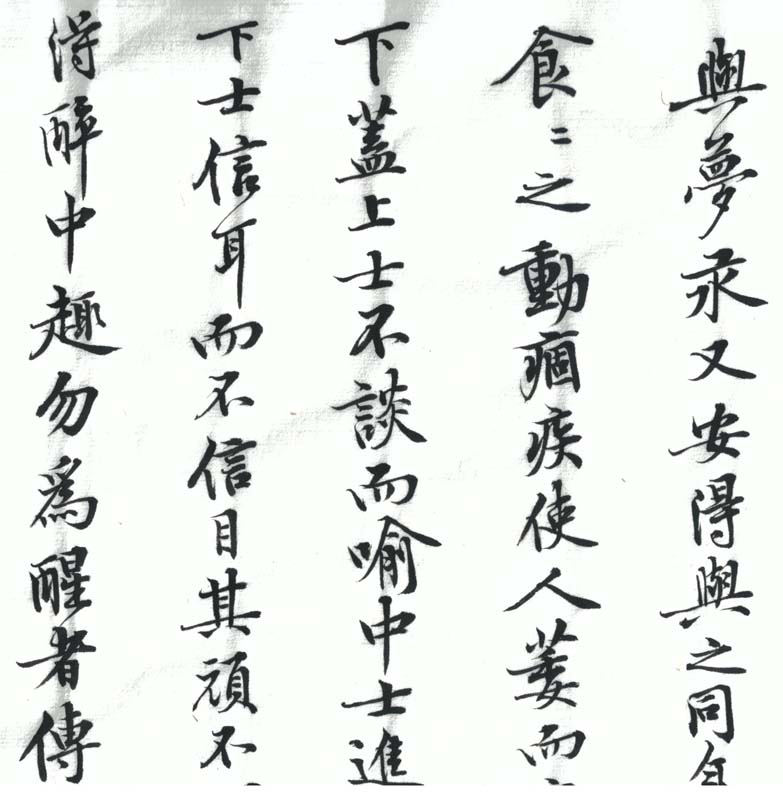 與夢永又安得與之同年
食〻之動痼疾使人萎而
下蓋上士不談而喻中士進
下士信耳而不信目其頑不
得醉中趣勿為醒者傳